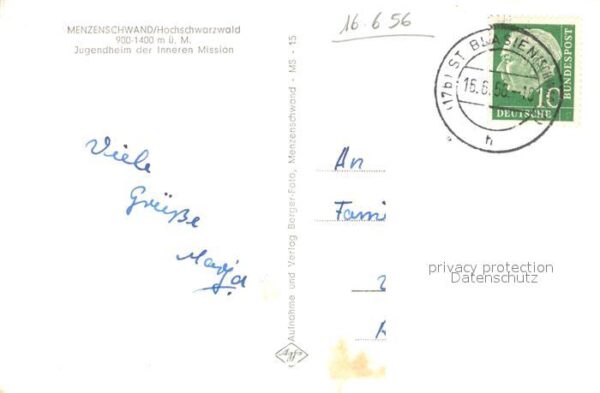 MENZENSCHWAND/Hochschwarzwald
900-1400 m ü. M.
Jugendheim der Inneren Mission
16.6.56
(17b) ST. BLASIEN
16.6.56.-18
h
10
DEUTSCHE
BUNDESPOST
Viele
Grüße
Aufnahme und Verlag Berger-Foto, Menzenschwand - MS - 15
Agfa
An
Fami
privacy protection
Datenschutz